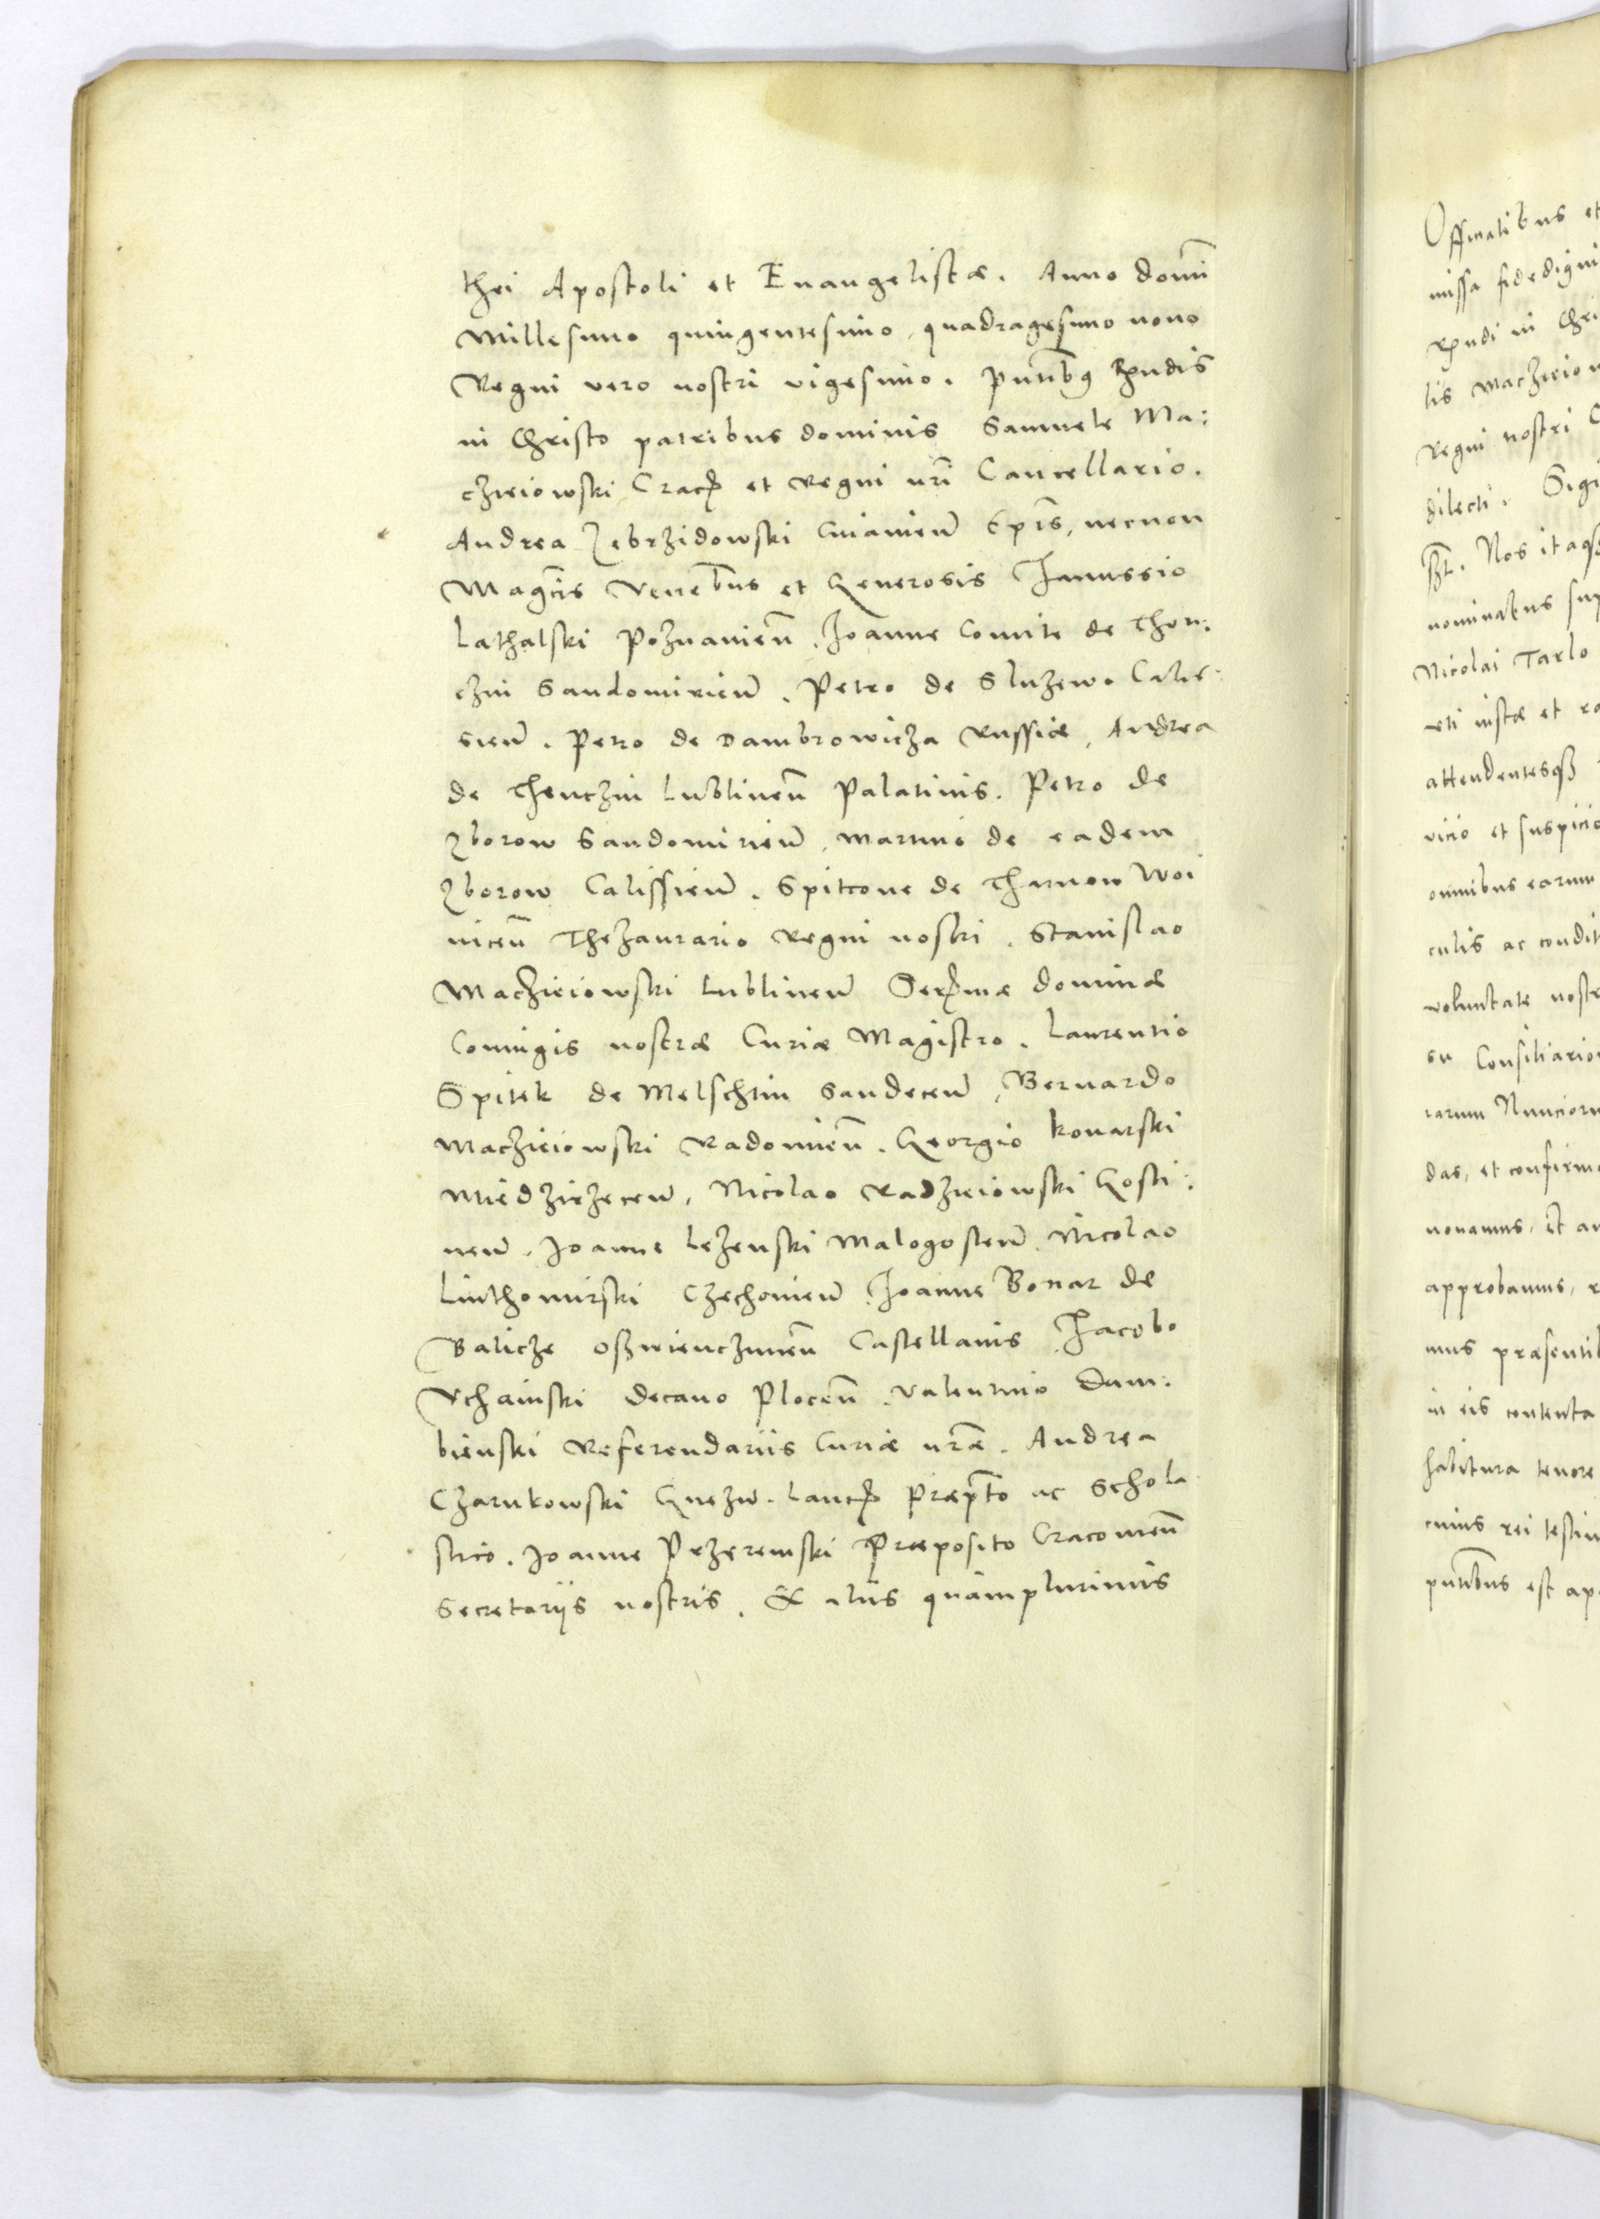 thei Apostoli et Euangelistæ. Anno domī
Millesimo quingentesimo, quadragesimo nono
Regni vero nostri vigesimo. Pn̄tibꝰ Rn̄dis
in Christo patribus dominis Samuele Ma:
czieiowski Cracꝭ et Regni nr̄i Cancellario.
Andrea Zebrzidowski Cuiauien̄ Ep̄is, necnon
Magcīs Venerbn̄s et Generosis Ianussio
Lathalski Poznanien̄. Ioanne Comite de Then:
czin Sandomirien̄. Petro de Sluzewo Calis:
sien̄. Petro de Dambrowicza Russiæ, Andrea
de Thenczin Lublinen̄ Palatinis. Petro de
Zborow Sandomirien̄, Martino de eadem
Zborow Calissien̄. Spitcone de Tharnow Woi
nicen̄ Thezaurario Regni nostri. Stanislao
Maczieiowski Lublinen̄ Serꝭmæ dominæ
Coniugis nostræ Curiæ Magistro. Laurentio
Spitek de Melschtin Sandecen̄, Bernardo
Maczieiowski Radomien̄. Georgio Konarski
Miedzirzecen̄, Nicolao Radzieiowski Gosti:
nen̄. Ioanne Lezenski Malogosten̄. Nicolao
Linthomirski Czechonien̄. Ioanne Bonar de
Balicze Oszwienczimen̄ Castellanis. Iacobo
Vchainski decano Plocen̄. Valentino Dam:
bienski Referendariis Curiæ nr̄æ. Andrea
Czarnkowski Gnezn. Lancꝭ Præpt̄o ac Schola
stico. Ioanne Przeremski Præposito Cracouien̄
Secretariis nostris. & aliis quamplurimis
Offitialibus et
missa fidedigni
Rn̄di in Chri
lis Maczieiow
Regni nostri C
dilecti. Sigi
Nos itaqꝫ
nominatus sup
Nicolai Tarlo
uti iustæ et ra
attendentesqꝫ
vicio et suspicio
omnibus earum
culis ac condit
voluntate nostr
su Consiliario
rarum Nuncioru
das, et confirma
nouamus, Et au
approbamus, r
mus præsentib
in eis contenta
habitura tenore
cuius rei testim
pn̄tibus est ap